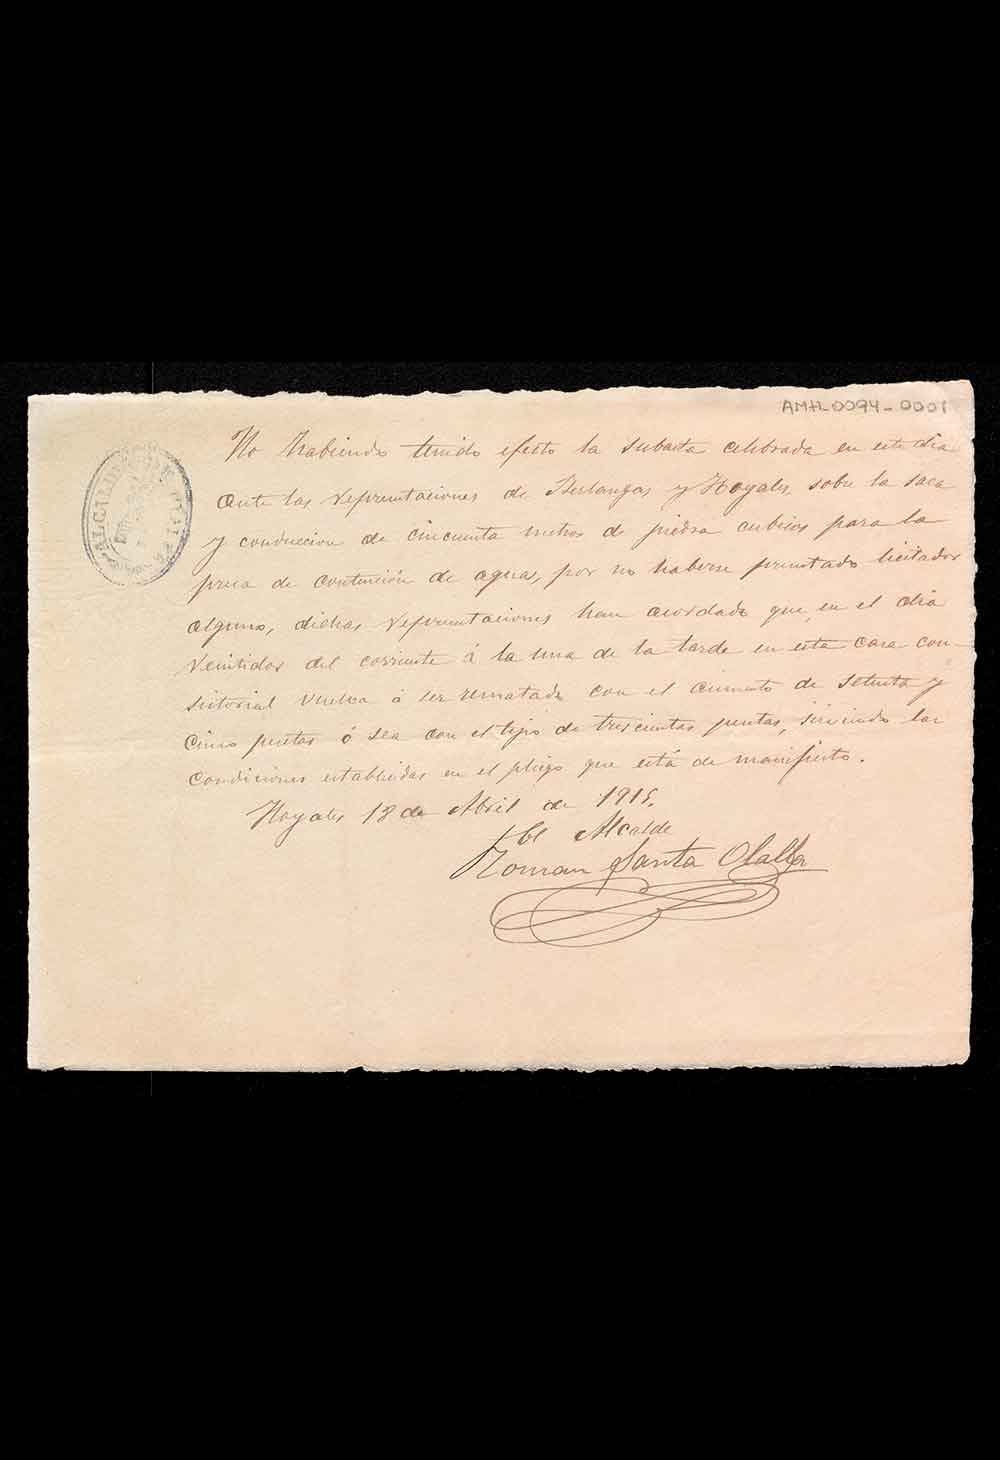 AMH-0094-0001
No habiendo tenido efecto la subasta celebrada en este dia
ante las representaciones de Berlangas y Hoyales, sobre la saca
y conduccion de cincuenta metros de piedra cubicos para la
presa de contención de aguas, por no haberse presentado licitador
alguno, dichas representaciones han acordado que, en el dia
veintidos del corriente á la una de la tarde en esta casa con-
sistorial vuelva á ser rematada con el aumento de setenta y
cinco pesetas ó sea con el tipo de trescientas pesetas, sirviendo las
condiciones establecidas en el pliego que está de manifiesto.
Hoyales 18 de Abril de 1915.
El Alcalde
Roman Santa Olalla
ALCALDIA DE